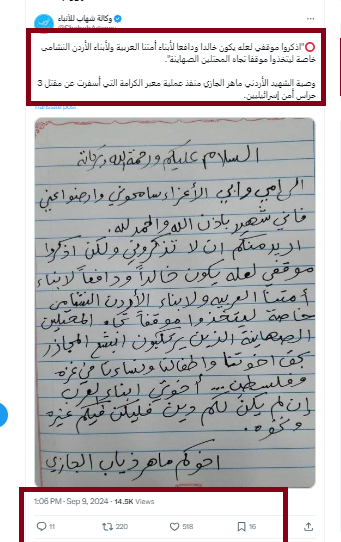 وكالة شهاب للأنباء
"اذكروا موقفي لعله يكون خالدا ودافعا لأبناء أمتنا العربية ولأبناء الأردن النشامى
خاصة ليتخذوا موقفا تجاه المحتلين الصهاينة".
وصية الشهيد الأردني ماهر الجازي منفذ عملية معبر الكرامة التي أسفرت عن مقتل 3
حراس أمن إسرائيليين.
السلام عليكم ورحمة الله وبركاته
الى امي وابي الأعزاء سامحوني وارضوا عني
فاني شهير باذن الله والحمد لله.
اريد منكم ان لا تذكروني ولكن اذكروا
موقفي لعله يكون خالداً ودافعاً لابناء
أمتنا العربيه ولابناء الأردن النشامى
خاصة ليتخذوا موقفاً تجاه المحتلين
الصهاينة الذين يرتكبون ابشع المجازر
بحق اخوتنا واطفالنا ونساءنا في غزه
وفلسطين ... أخوتي ابناء العرب
إن لم يكن لكم دين فليكن فيكم غيره
ونخوه.
اخوكم ماهر ذياب الجازي
1:06 PM · Sep 9, 2024 · 14.5K Views
11 220 518 16